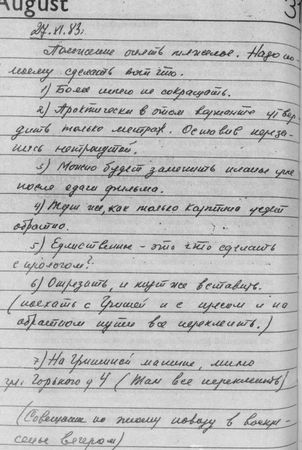 August 3
27.VI.83.
Положение опять тяжелое. Надо по-
моему сделать вот что.
1) Более ничего не сокращать.
2) Практически в этом варианте утвер-
дить только метраж. Оставив нереза-
ность нетронутой.
3) Можно будет заменить планы уже
после сдачи фильма.
4) Тут же, как только картина уедет
обратно.
5) Единственное - это что сделать
с прологом?
6) Отрезать, и тут же вставить.
(поехать с Гришей и с прессом и на
обратном пути все переклеить.)
7) На Гришиной машине, мимо
Горького д 4 (Там все переклеить)
(Совещание по этому поводу в воскре-
сенье вечером)